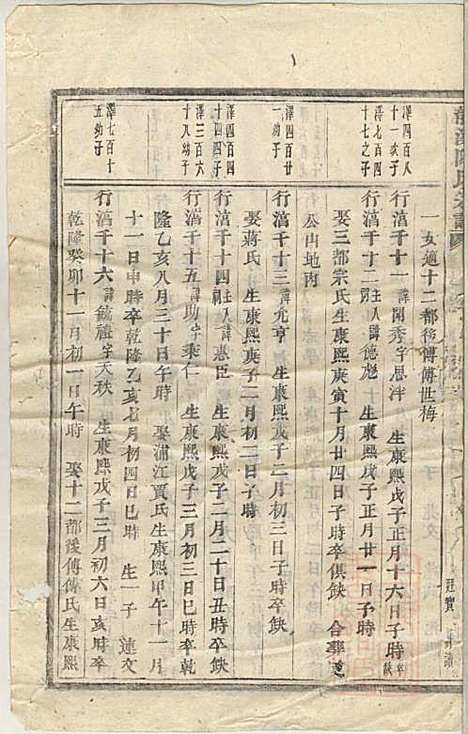 一女適十二都後傅傅世梅
澤四百八十一次子
行滈千十一諱開秀字思泮 生康熙戊子正月十六日子時卒缺
澤七百四十七之子
行滈千十二諱主人德彪 生康熙戊子正月廿一日子時
娶三都宗氏生康熙庚寅十月廿四日子時卒俱缺 合葬
公山地內
澤四百廿一幼子
行滈千十三諱光亨 生康熙戊子二月初三日子時卒缺
娶蔣氏 生康熙庚子二月初二日子時
澤四百四十四子
行滈千十四諱主人憲臣 生康熙戊子二月二十日丑時卒缺
澤三百六十八幼子
行滈千十五諱助字秉仁 生康熙戊子三月初三日巳時卒乾
隆乙亥八月三十日午時 娶浦江賈氏生康熙甲午十一月
十一日申時卒乾隆乙亥七月初四日巳時 生一子 連文
澤七百十五幼子
行滈千十六諱毓禮字天秩 生康熙戊子三月初六日亥時卒
乾隆癸卯十一月初一日午時 娶十二都後傅傅氏生康熙